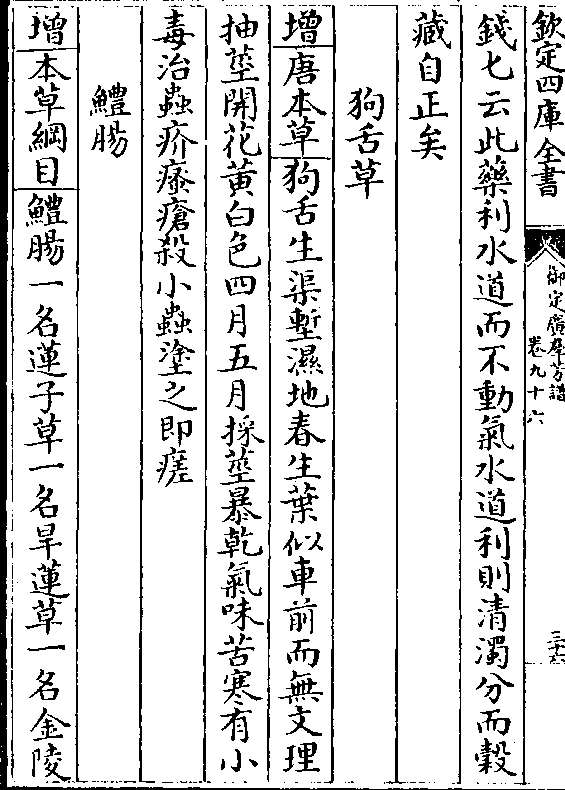 欽定四庫全書
御定廣羣芳譜
卷九十六
三十六
錢乙云此藥利水道而不動氣水道利則清濁分而穀
藏自正矣
狗舌草
增唐本草狗舌生渠塹濕地春生葉似車前而無文理
抽莖開花黃白色四月五月採莖暴乾氣味苦寒有小
毒治蟲疥瘙瘡殺小蟲塗之即瘥
鱧腸
增本草綱目鱧腸一名蓮子草一名旱蓮草一名金陵